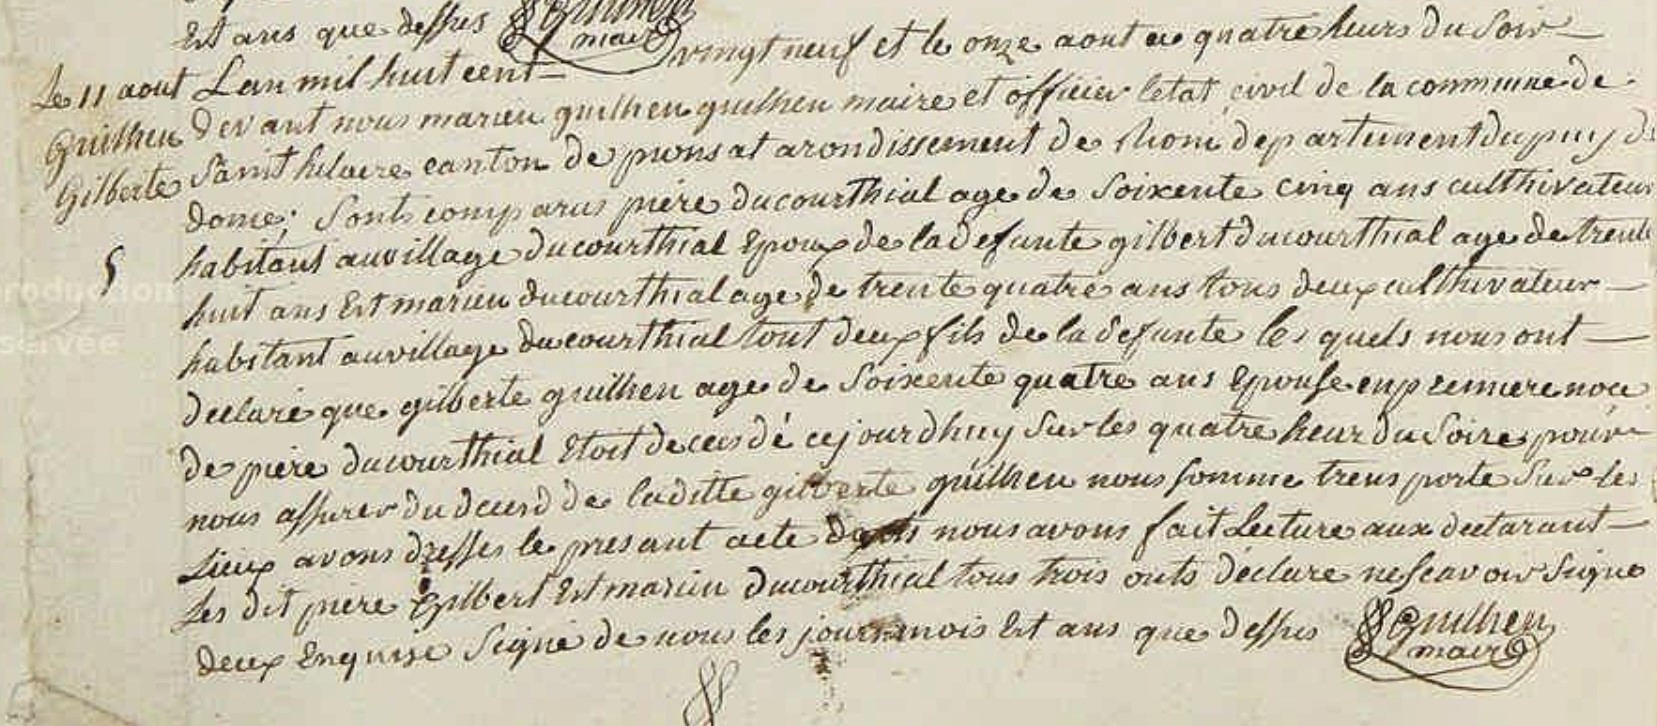 Est ans que dessus Guilhen
maire
Le 11 aout
Guilhen
Gilberte
5
Lan mil huit cent vingt neuf et le onze aout a quatre heurs du Soir
devant nous marien guilhen guilhen maire et officier letat civil de la commune de
Saint hilaire canton de pionsat arondissement de Riom departement du puy de
dome; Sont comparus piere ducourthial age de Soixente cinq ans culthivateur
habitant au village ducourthial Epoux de la defunte gilbert ducourthial age de trente
huit ans Est marien ducourthial age de trente quatre ans tous deux culthivateur
habitant au village ducourthial tout deux fils de la defunte les quels nous ont
declaré que gilberte guilhen age de Soixente quatre ans Epouse en premiere noce
de piere ducourthial Etoit decesdé cejourdhuy Sur les quatre heur du Soire pour
nous assurer du deced de laditte gilberte guilhen nous somme trensporte Sur les
Lieux avons dresses le presant acte nous avons fait Lecture aux declarant
Les dit piere gilbert Est marien ducourthial tous trois onts déclare ne scavoir Signe
deux Enquise Signé de nous les jour mois Est ans que dessus Guilhen
maire
production
servée